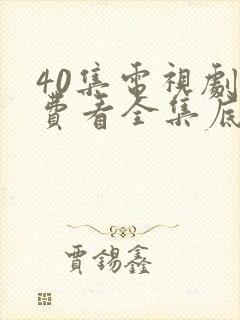 40集電視劇
費看全集底
賈錫鑫